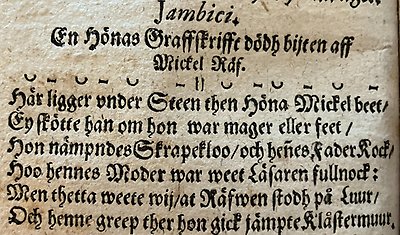 Jambici.
En Hönas Graffskrifft dödh bijten aff
Mickel Räf.
Här ligger vnder Steen then Höna Mickel beet/
Ey skötte han om hon war mager eller feet/
Hon nämpndes Skrapekloo/och heñes Fader Kock/
Hoo hennes Moder war weet Läsaren fullnock:
Men thetta weete wij/at Räfwen stodh på Luur/
Och henne greep ther hon gick jämpte Klåstermuur.